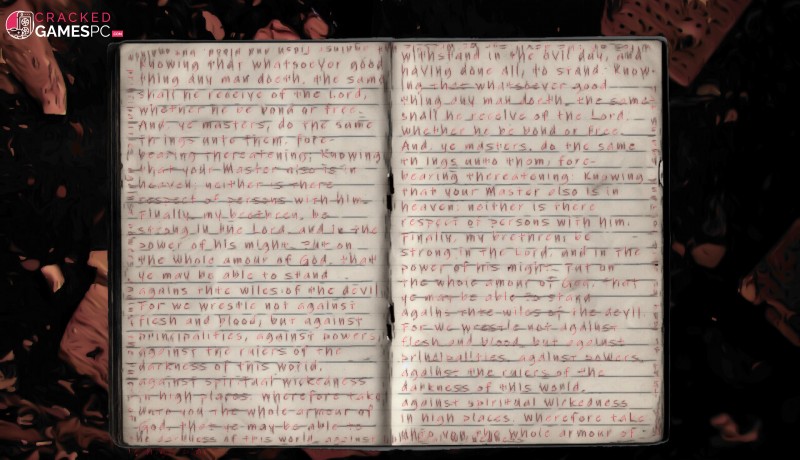 CRACKED
GAMESPC
.COM
knowing that whatsoever good
thing any man doeth, the same
shall he receive of the Lord,
whether he be bond or free.
And, ye masters, do the same
things unto them, fore-
bearing threatening; knowing
that your Master also is in
heaven; neither is there
respect of persons with him.
Finally, my brethren, be
strong in the Lord, and in the
power of his might. Put on
the whole amour of God, that
ye may be able to stand
agains the wiles of the devil
For we wrestle not against
flesh and blood, but against
principalities, against powers,
against the rulers of the
darkness of this world,
against spiritual wickedness
in high places. Wherefore take
unto you the whole armour of
God, that ye may be able to
the darkness of this world, against
withstand in the evil day, and
having done all, to stand. Know-
ing that whatsoever good
thing any man doeth, the same
shall he receive of the Lord,
whether he be bond or free.
And, ye masters, do the same
things unto them, fore-
bearing threatening. Knowing
that your Master also is in
heaven. neither is there
respect of persons with him.
Finally, my brethren, be
strong in the Lord, and in the
power of his might. Put on
the whole amour of God, that
ye may be able to stand
agains the wiles of the devil.
For we wrestle not against
flesh and blood, but against
principalities, against powers,
against the rulers of the
darkness of this world.
against spiritual wickedness
in high places. Wherefore take
the whole armour of